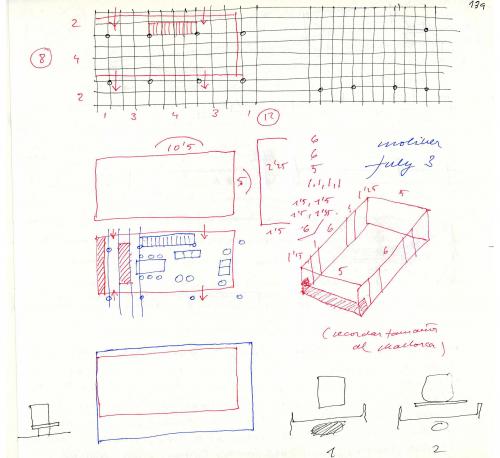 139
2
8
4
2
1 3 4 3 1
12
10'5
5
2'25
6
6
5
1, 1, 1, 1
1'5, 1'5
1'5, 1'5
1'5
6 / 6
moliner
july 3
1'25
5
6
1'5
5
6
(recordar tamaños
de Mallorca)
1
2